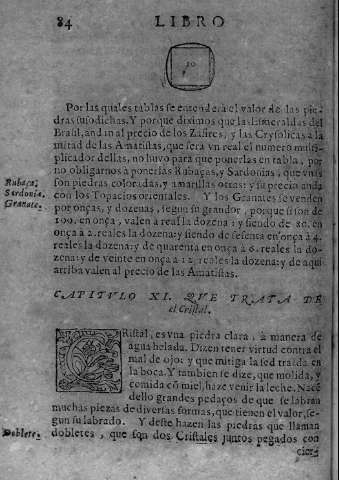 84 LIBRO
10
Por las quales tablas se entenderá el valor de las pie-
dras susodichas. Y porque diximos que las Esmeraldas del
Brasil, andan al precio de los Zafires, y las Crysolicas a la
mitad de las Amatistas, que será vn real el numero multi-
plicador dellas, no huvo para que ponerlas en tabla, por
no obligarnos a poner las Rubaças, y Sardonias, que vnas
son piedras coloradas, y amarillas otras: y su precio anda
con los Topacios orientales. Y los Granates se venden
por onças, y dozenas, segun su grandor, porque si son de
100. en onça, valen a real la dozena: y siendo de 80. en
onça a 2. reales la dozena: y siendo de sesenta en onça a 4.
reales la dozena: y de quarenta en onça a 6. reales la do-
zena: y de veinte en onça a 12. reales la dozena: y de aqui
arriba valen al precio de las Amatistas.
Rubaça,
Sardonia,
Granate.
CAPITVLO XI. QVE TRATA DE
el Cristal.
CRistal, es vna piedra clara, à manera de
agua helada. Dizen tener virtud contra el
mal de ojo: y que mitiga la sed traida en
la boca. Y tambien se dize, que molida, y
comida cō miel, haze venir la leche. Nace
dello grandes pedaços, de que se labran
muchas piezas de diversas formas, que tienen el valor, se-
gun su labrado. Y deste hazen las piedras que llaman
dobletes, que son dos Cristales juntos pegados con
Doblete.
cier-